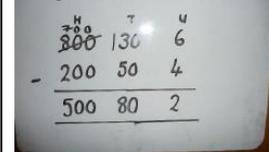 H T U
700
800 130 6
- 200 50 4
500 80 2